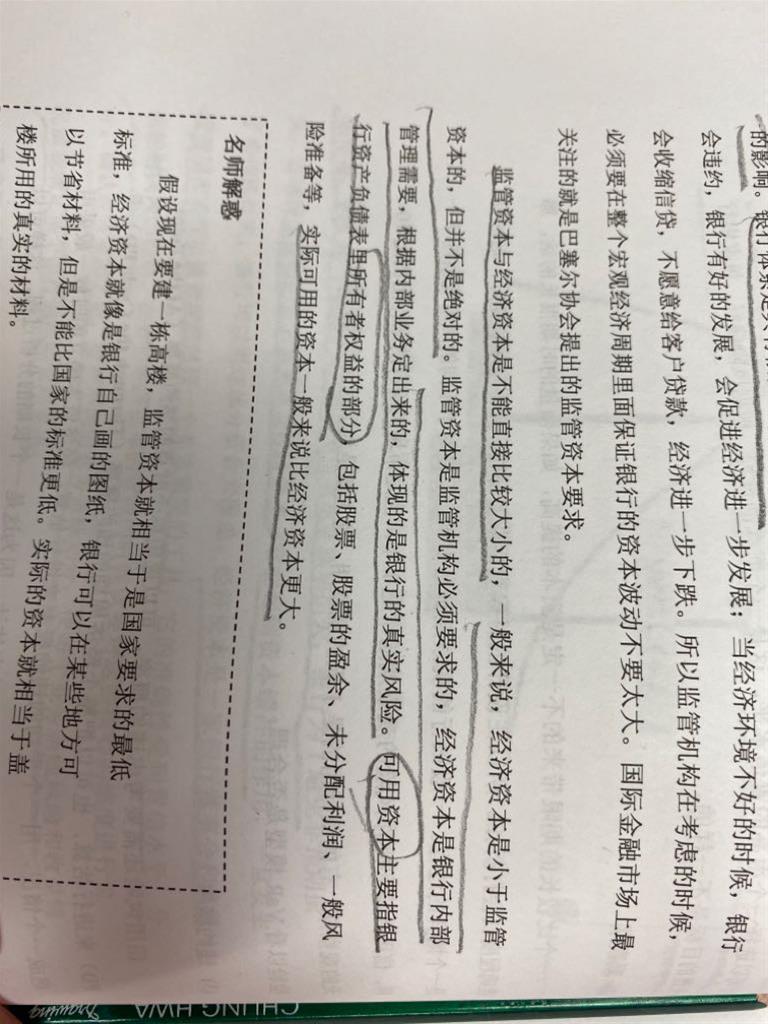 的影响。银行体系是具有
会违约，银行有好的发展，会促进经济进一步发展；当经济环境不好的时候，银行
会收缩信贷，不愿意给客户贷款，经济进一步下跌。所以监管机构在考虑的时候，
必须要在整个宏观经济周期里面保证银行的资本波动不要太大。国际金融市场上最
关注的就是巴塞尔协会提出的监管资本要求。
监管资本与经济资本是不能直接比较大小的，一般来说，经济资本是小于监管
资本的，但并不是绝对的。监管资本是监管机构必须要求的，经济资本是银行内部
管理需要，根据内部业务定出来的，体现的是银行的真实风险。可用资本主要指银
行资产负债表里所有者权益的部分，包括股票、股票的盈余、未分配利润、一般风
险准备等，实际可用的资本一般来说比经济资本更大。
名师解惑
假设现在要建一栋高楼，监管资本就相当于是国家要求的最低
标准，经济资本就像是银行自己画的图纸，银行可以在某些地方可
以节省材料，但是不能比国家的标准更低。实际的资本就相当于盖
楼所用的真实的材料。
CHUNG HWA
Drawing